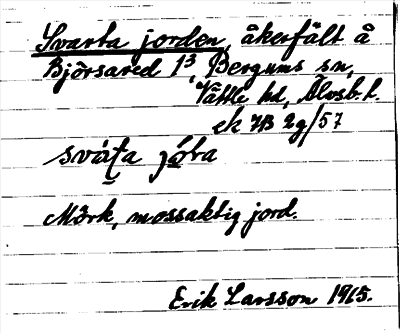 Svarta jorden, åkerfält å
Björsared 1³, Bergums sn,
Vättle hd, Älvsb. l.
ek 7B 2g/57
Mörk, mossaktig jord.
Erik Larsson 1915.